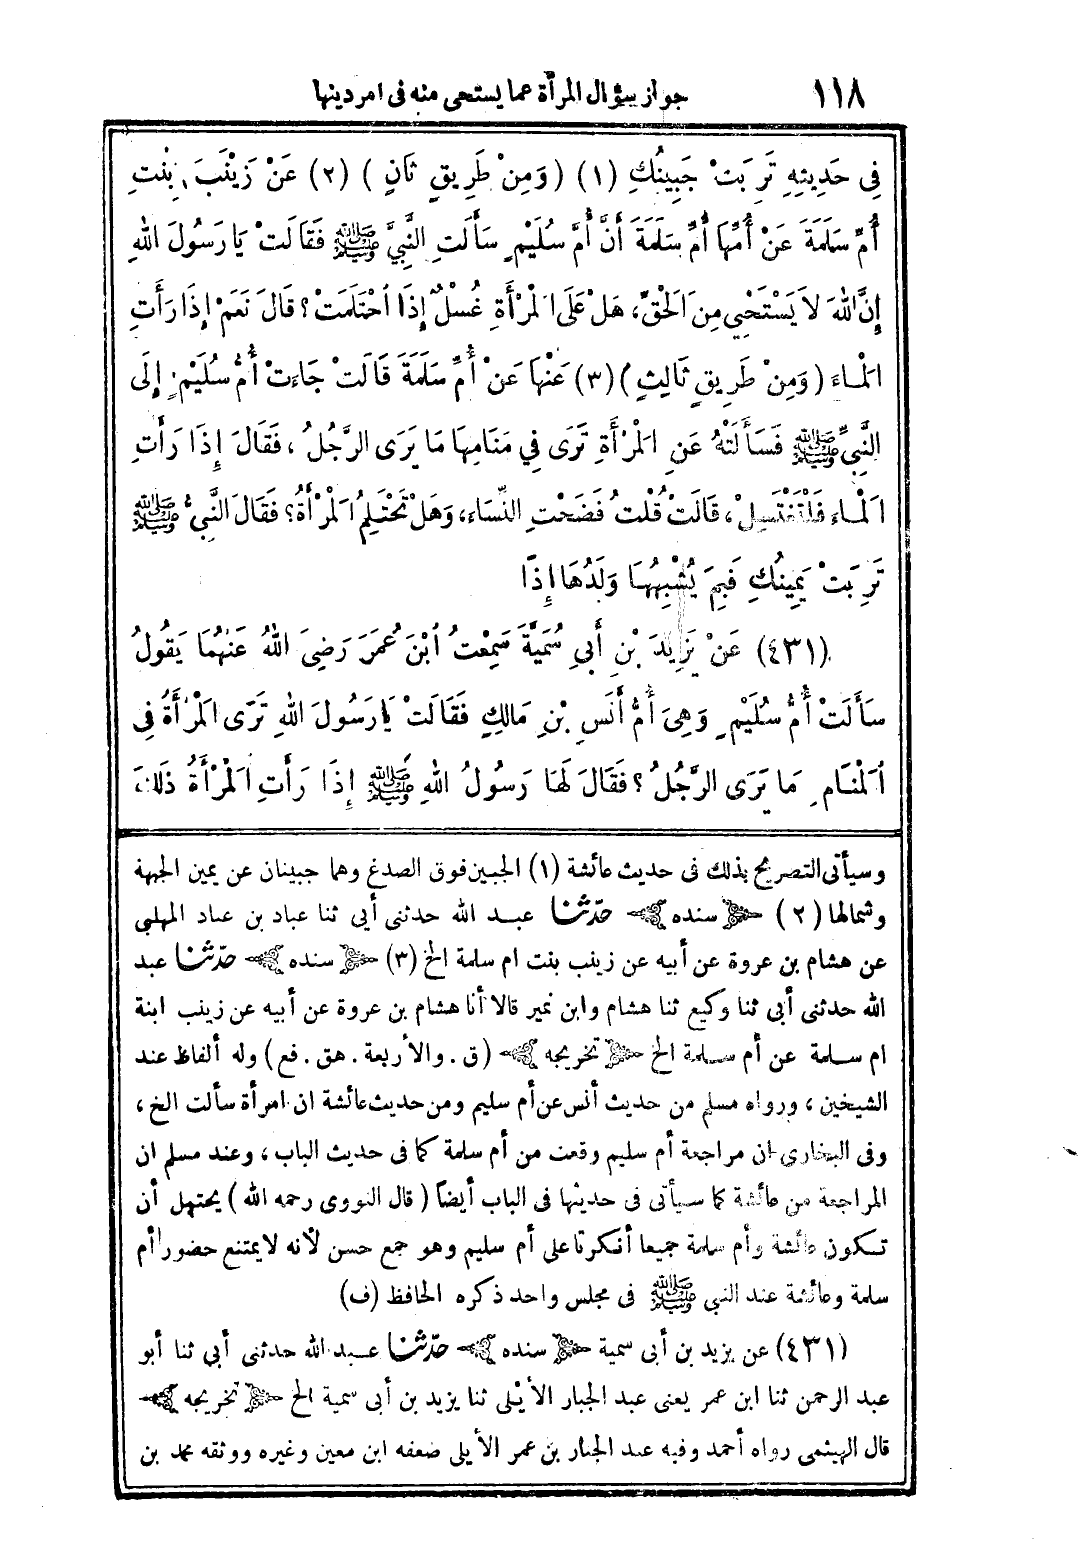 ١١٨ جواز سؤال المرأة عما يستحى منه فى امر دينها
فِى حَدِيثِهِ تَرِبَتْ جَبِينُكِ (١) (وَمِنْ طَرِيقٍ ثَانٍ) (٢) عَنْ زَيْنَبَ بِنْتِ
أُمِّ سَلَمَةَ عَنْ أُمِّهَا أُمِّ سَلَمَةَ أَنَّ أُمَّ سُلَيْمٍ سَأَلَتِ النَّبِيَّ ﷺ فَقَالَتْ يَا رَسُولَ اللهِ
إِنَّ اللهَ لاَ يَسْتَحْيِي مِنَ الْحَقِّ، هَلْ عَلَى الْمَرْأَةِ غُسْلٌ إِذَا احْتَلَمَتْ؟ قَالَ نَعَمْ إِذَا رَأَتِ
الْمَاءَ (وَمِنْ طَرِيقٍ ثَالِثٍ) (٣) عَنْهَا عَنْ أُمِّ سَلَمَةَ قَالَتْ جَاءَتْ أُمُّ سُلَيْمٍ إِلَى
النَّبِيِّ ﷺ فَسَأَلَتْهُ عَنِ الْمَرْأَةِ تَرَى فِي مَنَامِهَا مَا يَرَى الرَّجُلُ، فَقَالَ إِذَا رَأَتِ
الْمَاءَ فَلْتَغْتَسِلْ، قَالَتْ قُلْتُ فَضَحْتِ النِّسَاءَ، وَهَلْ تَحْتَلِمُ الْمَرْأَةُ؟ فَقَالَ النَّبِيُّ ﷺ
تَرِبَتْ يَمِينُكِ فَبِمَ يُشْبِهُهَا وَلَدُهَا إِذًا
(٤٣١) عَنْ يَزِيدَ بْنِ أَبِي سُمَيَّةَ سَمِعْتُ ابْنَ عُمَرَ رَضِيَ اللهُ عَنْهُمَا يَقُولُ
سَأَلَتْ أُمُّ سُلَيْمٍ وَهِىَ أُمُّ أَنَسِ بْنِ مَالِكٍ فَقَالَتْ يَا رَسُولَ اللهِ تَرَى الْمَرْأَةُ فِى
الْمَنَامِ مَا يَرَى الرَّجُلُ؟ فَقَالَ لَهَا رَسُولُ اللهِ ﷺ إِذَا رَأَتِ الْمَرْأَةُ ذَلِكَ،
وسيأتى التصريح بذلك فى حديث عائشة (١) الجبين فوق الصدغ وهما جبينان عن يمين الجبهة
وشمالها (٢) ﴿سنده﴾ حدّثنا عبد الله حدثنى أبي ثنا عباد بن عباد المهلبى
عن هشام بن عروة عن أبيه عن زينب بنت ام سلمة الخ (٣) ﴿سنده﴾ حدّثنا عبد
الله حدثنى أبى ثنا وكيع ثنا هشام وابن نمير قالا أنا هشام بن عروة عن أبيه عن زينب ابنة
ام سلمة عن أم سلمة الخ ﴿تخريجه﴾ (ق. والأربعة. هق. فع) وله ألفاظ عند
الشيخين، ورواه مسلم من حديث أنس عن أم سليم ومن حديث عائشة ان امرأة سألت الخ،
وفى البخارى ان مراجعة أم سليم وقعت من أم سلمة كما فى حديث الباب، وعند مسلم ان
المراجعة من عائشة كما سيأتى فى حديثها فى الباب أيضاً (قال النووى رحمه الله) يحتمل أن
تكون عائشة وأم سلمة جميعا أنكرتا على أم سليم وهو جمع حسن لأنه لا يمتنع حضور أم
سلمة وعائشة عند النبي ﷺ فى مجلس واحد ذكره الحافظ (ف)
(٤٣١) عن يزيد بن أبى سمية ﴿سنده﴾ حدّثنا عبد الله حدثنى أبي ثنا أبو
عبد الرحمن ثنا ابن عمر يعنى عبد الجبار الأيلى ثنا يزيد بن أبى سمية الخ ﴿تخريجه﴾
قال الهيثمى رواه أحمد وفيه عبد الجبار بن عمر الأيلى ضعفه ابن معين وغيره ووثقه محمد بن